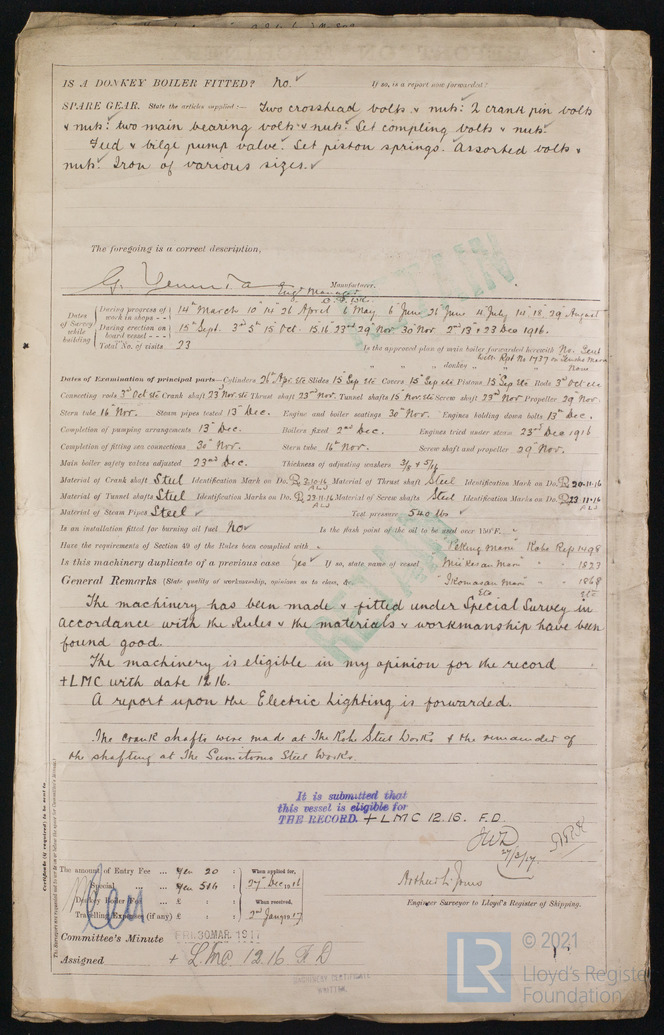 IS A DONKEY BOILER FITTED? No. If so, is a report now forwarded?
SPARE GEAR. State the articles supplied:— Two crosshead bolts & nuts. 2 crank pin bolts
& nuts. two main bearing bolts & nuts. Set coupling bolts & nuts.
Feed & bilge pump valve. Set piston springs. Assorted bolts &
nuts. Iron of various sizes.
The foregoing is a correct description,
Manufacturer.
Engr Manager
Dates of Survey while building
During progress of work in shops - - 14th March 10 14 26 April 6 May 6 June 26 June 4 July 14 18 29 August
During erection on board vessel - - - 15th Sept. 3rd 5th 15 Oct. 15 16 23rd 29 Nov 30 Nov 2nd 13 & 23 Dec 1916.
Total No. of visits 23 Is the approved plan of main boiler forwarded herewith No. Sent
with Rpt No 1737 on Maru
" " " donkey " " " None
Dates of Examination of principal parts—Cylinders 26th Apr. etc Slides 15 Sep etc Covers 15 Sep etc Pistons 15 Sep etc Rods 3rd Oct etc
Connecting rods 3rd Oct etc Crank shaft 23 Nov etc Thrust shaft 23rd Nov. Tunnel shafts 15 Nov etc Screw shaft 23rd Nov Propeller 29 Nov.
Stern tube 16 Nov. Steam pipes tested 13th Dec. Engine and boiler seatings 30th Nov. Engines holding down bolts 13th Dec.
Completion of pumping arrangements 13th Dec. Boilers fixed 2nd Dec. Engines tried under steam 23rd Dec 1916
Completion of fitting sea connections 30th Nov. Stern tube 16th Nov. Screw shaft and propeller 29th Nov.
Main boiler safety valves adjusted 23rd Dec. Thickness of adjusting washers 3/8 & 5/16
Material of Crank shaft Steel Identification Mark on Do. 3.10.16 ALJ Material of Thrust shaft Steel Identification Mark on Do. 20-11-16
Material of Tunnel shafts Steel Identification Marks on Do. 23.11.16 ALJ Material of Screw shafts Steel Identification Marks on Do. 23 11-16 ALJ
Material of Steam Pipes Steel Test pressure 540 lbs
Is an installation fitted for burning oil fuel No Is the flash point of the oil to be used over 150°F. "
Have the requirements of Section 49 of the Rules been complied with " "Peking Maru" Kobe Rpt 1498
Is this machinery duplicate of a previous case Yes If so, state name of vessel " " 1823
General Remarks (State quality of workmanship, opinions as to class, &c. "Ikomasan Maru" " " 1868
Etc etc
The machinery has been made & fitted under Special Survey in
accordance with the Rules & the materials & workmanship have been
found good.
The machinery is eligible in my opinion for the record
+LMC with date 12.16.
A report upon the Electric Lighting is forwarded.
The crank shafts were made at The Kobe Steel Works & the remainder of
the shafting at The Sumitomo Steel Works.
It is submitted that
this vessel is eligible for
THE RECORD. + LMC 12.16. F.D.
JWD
27/3/17
Certificate (if required) to be sent to
The amount of Entry Fee ... Yen 20 : When applied for,
Special ... Yen 516 : 27th Dec 1916
Donkey Boiler Fee ... £ : : When received,
Travelling Expenses (if any) £ : : 2nd Jany 1917
Arthur L. Jones
Engineer Surveyor to Lloyd's Register of Shipping.
Committee's Minute FRI. 30 MAR. 1917
Assigned + LMC. 12.16 F D
MACHINERY CERTIFICATE
WRITTEN.
LR © 2021
Lloyd's Register
Foundation